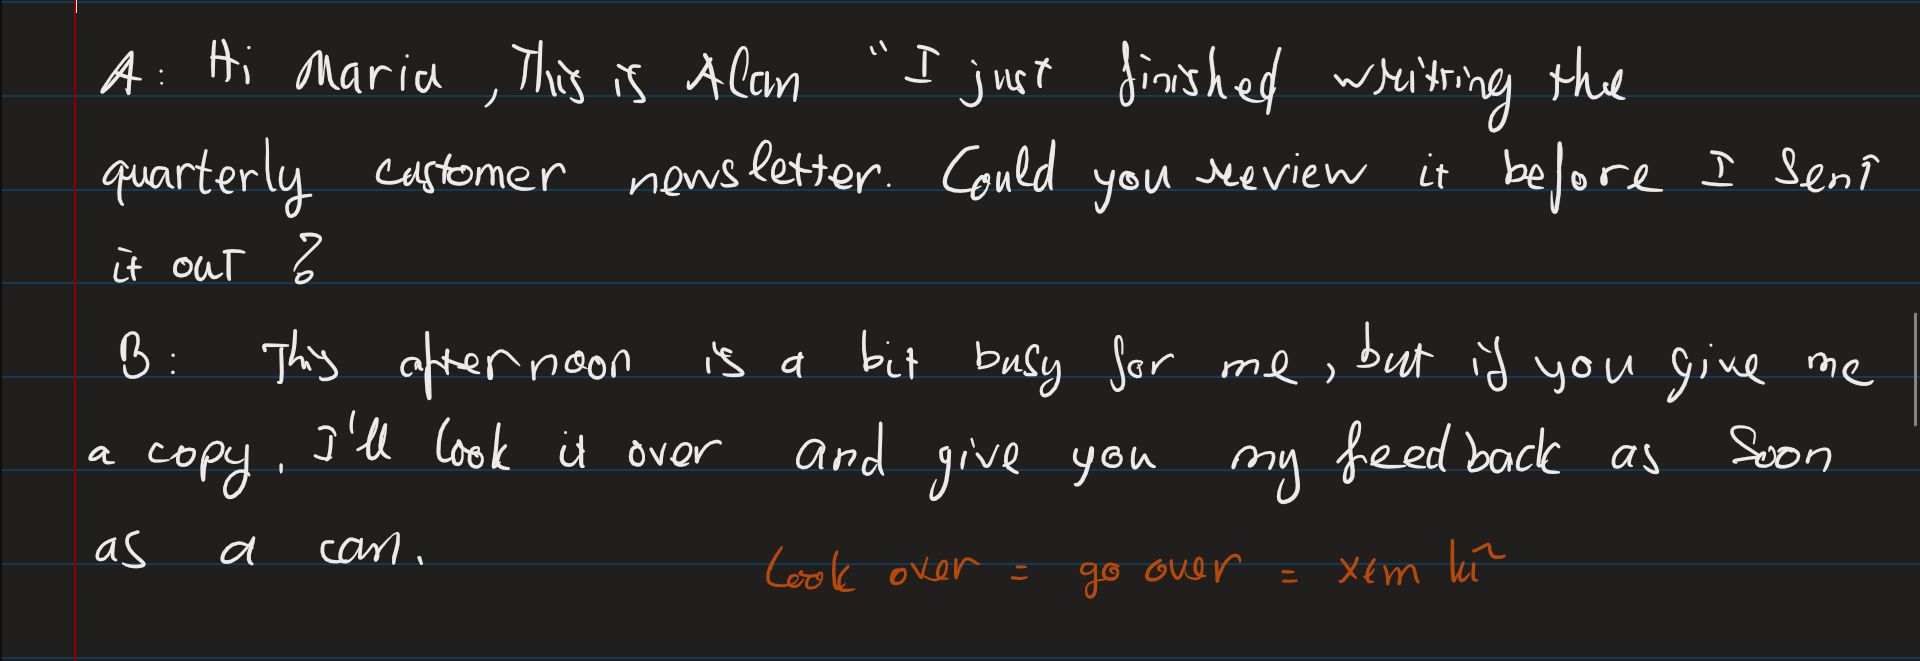 A: Hi Maria, This is Alan "I just finished writing the
quarterly customer newsletter. Could you review it before I Sent
it out ?
B: This afternoon is a bit busy for me, but if you give me
a copy, I'll look it over and give you my feedback as Soon
as a can.
Look over = go over = xem kĩ